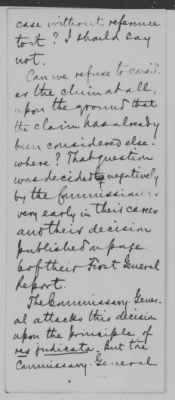 case without reference
to it? I should say
not.
Can we refuse to consid-
er the claim at all,
upon the ground that
the claim has already
been considered else-
where? That question
was decided negatively
by the Commissioners
very early in their career
and their decision
published on page
6 of their First General
Report.
The Commissary-Gener-
al attacks this decision
upon the principle of
res judicata. But the
Commissary-General